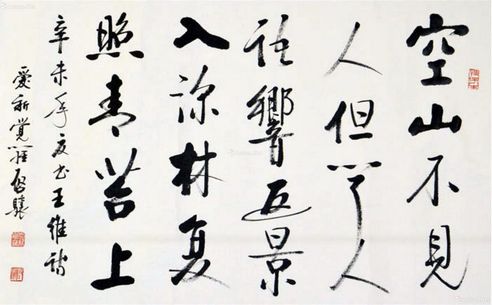 空山不見
人但聞人
語響返景
入深林復
照青苔上
辛未年夏书王維詩
愛新覺羅啟驤